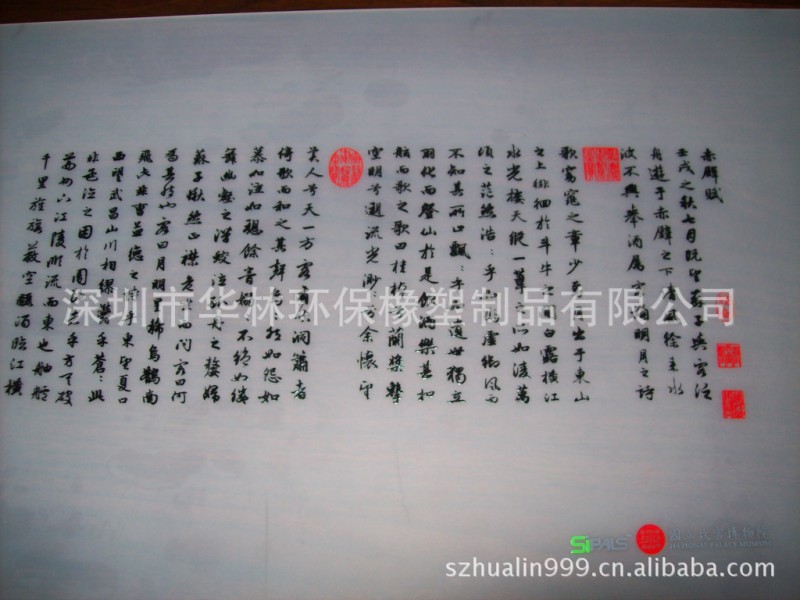 赤壁賦
壬戌之秋七月既望蘇子與客泛
舟遊于赤壁之下清風徐來水
波不興舉酒屬客誦明月之詩
歌窈窕之章少焉月出于東山
之上徘徊於斗牛之間白露橫江
水光接天縱一葦之所如凌萬
頃之茫然浩〻乎如馮虛御風而
不知其所止飄〻乎如遺世獨立
羽化而登仙於是飲酒樂甚扣
舷而歌之歌曰桂棹兮蘭槳擊
空明兮溯流光渺〻兮余懷望
美人兮天一方客有吹洞簫者
倚歌而和之其聲嗚嗚然如怨如
慕如泣如訴餘音嫋〻不絕如縷
舞幽壑之潛蛟泣孤舟之嫠婦
蘇子愀然正襟危坐而問客曰何
為其然也客曰月明星稀烏鵲南
飛此非曹孟德之詩乎東望夏口
西望武昌山川相繆鬱乎蒼〻此
非孟德之困於周郎者乎方其破
荊州下江陵順流而東也舳艫
千里旌旗蔽空釃酒臨江橫
深圳市华林环保橡塑制品有限公司
SiPALS
szhualin999.cn.alibaba.com